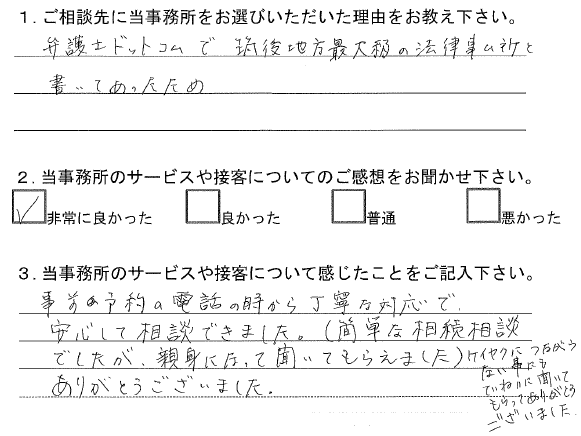 1．ご相談先に当事務所をお選びいただいた理由をお教え下さい。
弁護士ドットコムで 筑後地方最大級の法律事ム所と
書いてあったため
2．当事務所のサービスや接客についてのご感想をお聞かせ下さい。
非常に良かった 良かった 普通 悪かった
3．当事務所のサービスや接客について感じたことをご記入下さい。
事前の予約の電話の時から丁寧な対応で、
安心して相談できました。（簡単な相続相談
でしたが、親身になって聞いてもらえました）
ありがとうございました。
ケイヤクにつながら
ない事にも
ていねいに聞いて
もらってありがとう
ございました。